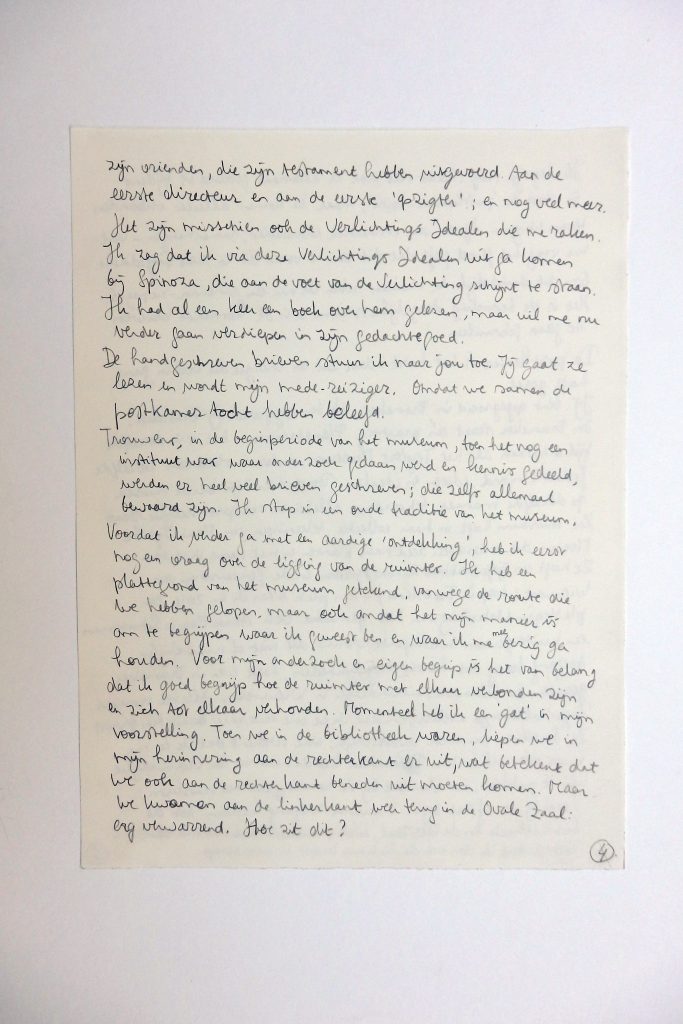 zijn vrienden, die zijn testament hebben uitgevoerd. Aan de
eerste directeur en aan de eerste 'opzigter'; en nog veel meer.
Het zijn misschien ook de Verlichtings Idealen die me raken.
Ik zag dat ik via deze Verlichtings Idealen uit ga komen
bij Spinoza, die aan de voet van de Verlichting schijnt te staan.
Ik had al een keer een boek over hem gelezen, maar wil me nu
verder gaan verdiepen in zijn gedachtegoed.
De handgeschreven brieven stuur ik naar jou toe. Jij gaat ze
lezen en wordt mijn mede-reiziger. Omdat we samen de
postkamer tocht hebben beleefd.
Trouwens, in de beginperiode van het museum, toen het nog een
instituut was waar onderzoek gedaan werd en kennis gedeeld,
werden er heel veel brieven geschreven; die zelfs allemaal
bewaard zijn. Ik stap in een oude traditie van het museum.
Voordat ik verder ga met een aardige 'ontdekking', heb ik eerst
nog een vraag over de ligging van de ruimtes. Ik heb een
plattegrond van het museum getekend, vanwege de route die
we hebben gelopen, maar ook omdat het mijn manier is
om te begrijpen waar ik geweest ben en waar ik me mee bezig ga
houden. Voor mijn onderzoek en eigen begrip is het van belang
dat ik goed begrijp hoe de ruimtes met elkaar verbonden zijn
en zich tot elkaar verhouden. Momenteel heb ik een 'gat' in mijn
voorstelling. Toen we in de bibliotheek waren, liepen we in
mijn herinnering aan de rechterkant er uit, wat betekent dat
we ook aan de rechterkant beneden uit moeten komen. Maar
we kwamen aan de linkerkant weer terug in de Ovale Zaal:
erg verwarrend. Hoe zit dit?
4